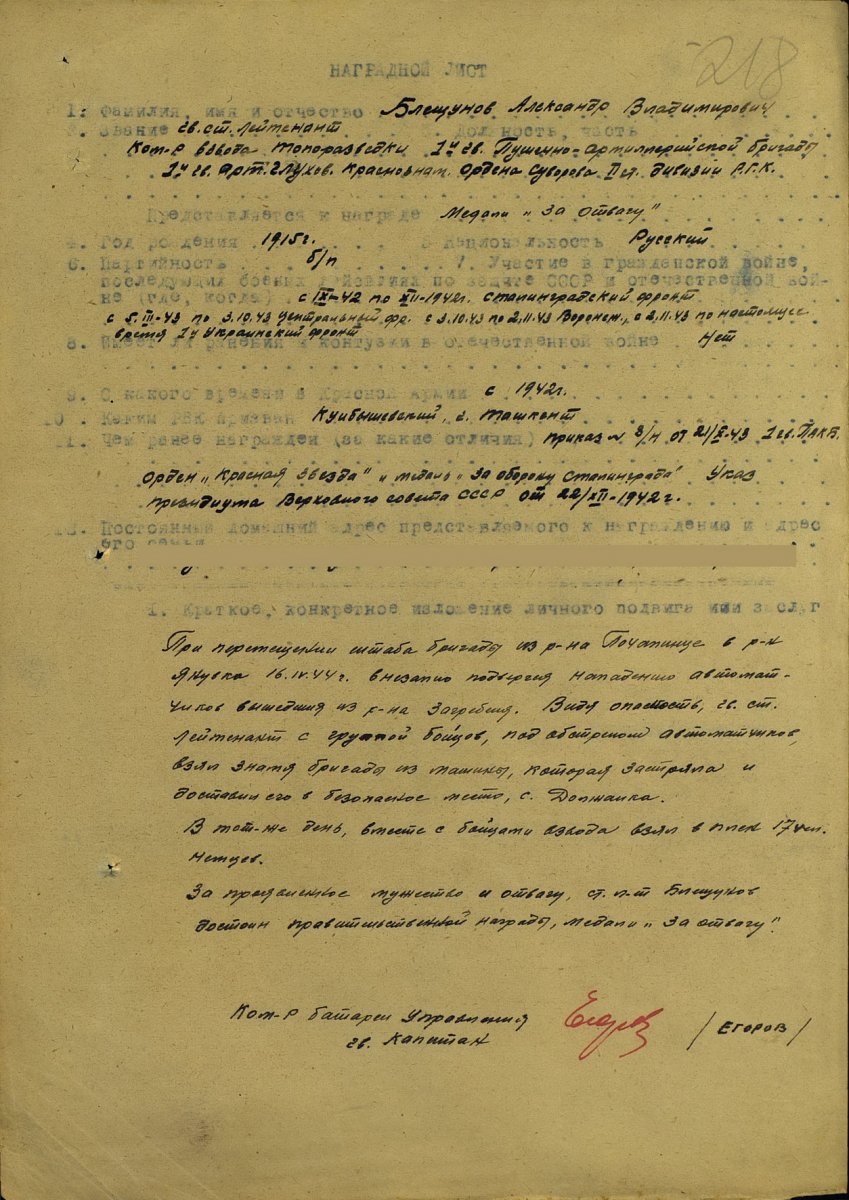 218
НАГРАДНОЙ ЛИСТ
1. Фамилия, имя и отчество Блещунов Александр Владимирович
2. Звание гв. ст. лейтенант Должность, часть
Ком-р взвода топоразведки 1й гв. Пушечно-артиллерийской бригады
1й гв. Арт. Глухов. Краснознам. Ордена Суворова II ст. дивизии Р.Г.К.
Представляется к награде Медали „За отвагу"
4. Год рождения 1915 г. 5 Национальность Русский
6. Партийность б/п 7. Участие в гражданской войне,
последующих боевых действиях по защите СССР и отечественной вой-
не (где, когда) с IX-42 по XII-1942 г. Сталинградский фронт
с 5.III-43 по 3.10.43 Центральный фр. с 3.10.43 по 2.11.43 Воронеж., с 2.11.43 по настоящее
время 1й Украинский фронт
8. Имеет ли ранения и контузии в отечественной войне Нет
9. С какого времени в Красной Армии с 1942 г.
10. Каким РВК призван Куйбышевский, г. Ташкент
11. Чем ранее награжден (за какие отличия) приказ № 3/н от 1 гв. ПАБР.
Орден „Красная звезда" и медаль „За оборону Сталинграда" Указ
президиума Верховного совета СССР от 22/XII-1942 г.
12. Постоянный домашний адрес представляемого к награждению и адрес
его семьи
1. Краткое, конкретное изложение личного подвига или заслуг
При перемещении штаба бригады из р-на Почапинце в р-н
Янувка 16.IV.44 г. внезапно подвергся нападению автомат-
чиков вышедших из р-на Загребеля. Видя опасность, гв. ст.
лейтенант с группой бойцов, под обстрелом автоматчиков,
взял знамя бригады из машины, которая застряла и
доставил его в безопасное место, с. Должанка.
В тот-же день, вместе с бойцами взвода взял в плен 17 чел.
немцев.
За проявленное мужество и отвагу, ст. л-т Блещунов
достоин правительственной награды, медали „За отвагу".
Ком-р батареи Управления
гв. Капитан Егоров / ЕГОРОВ /